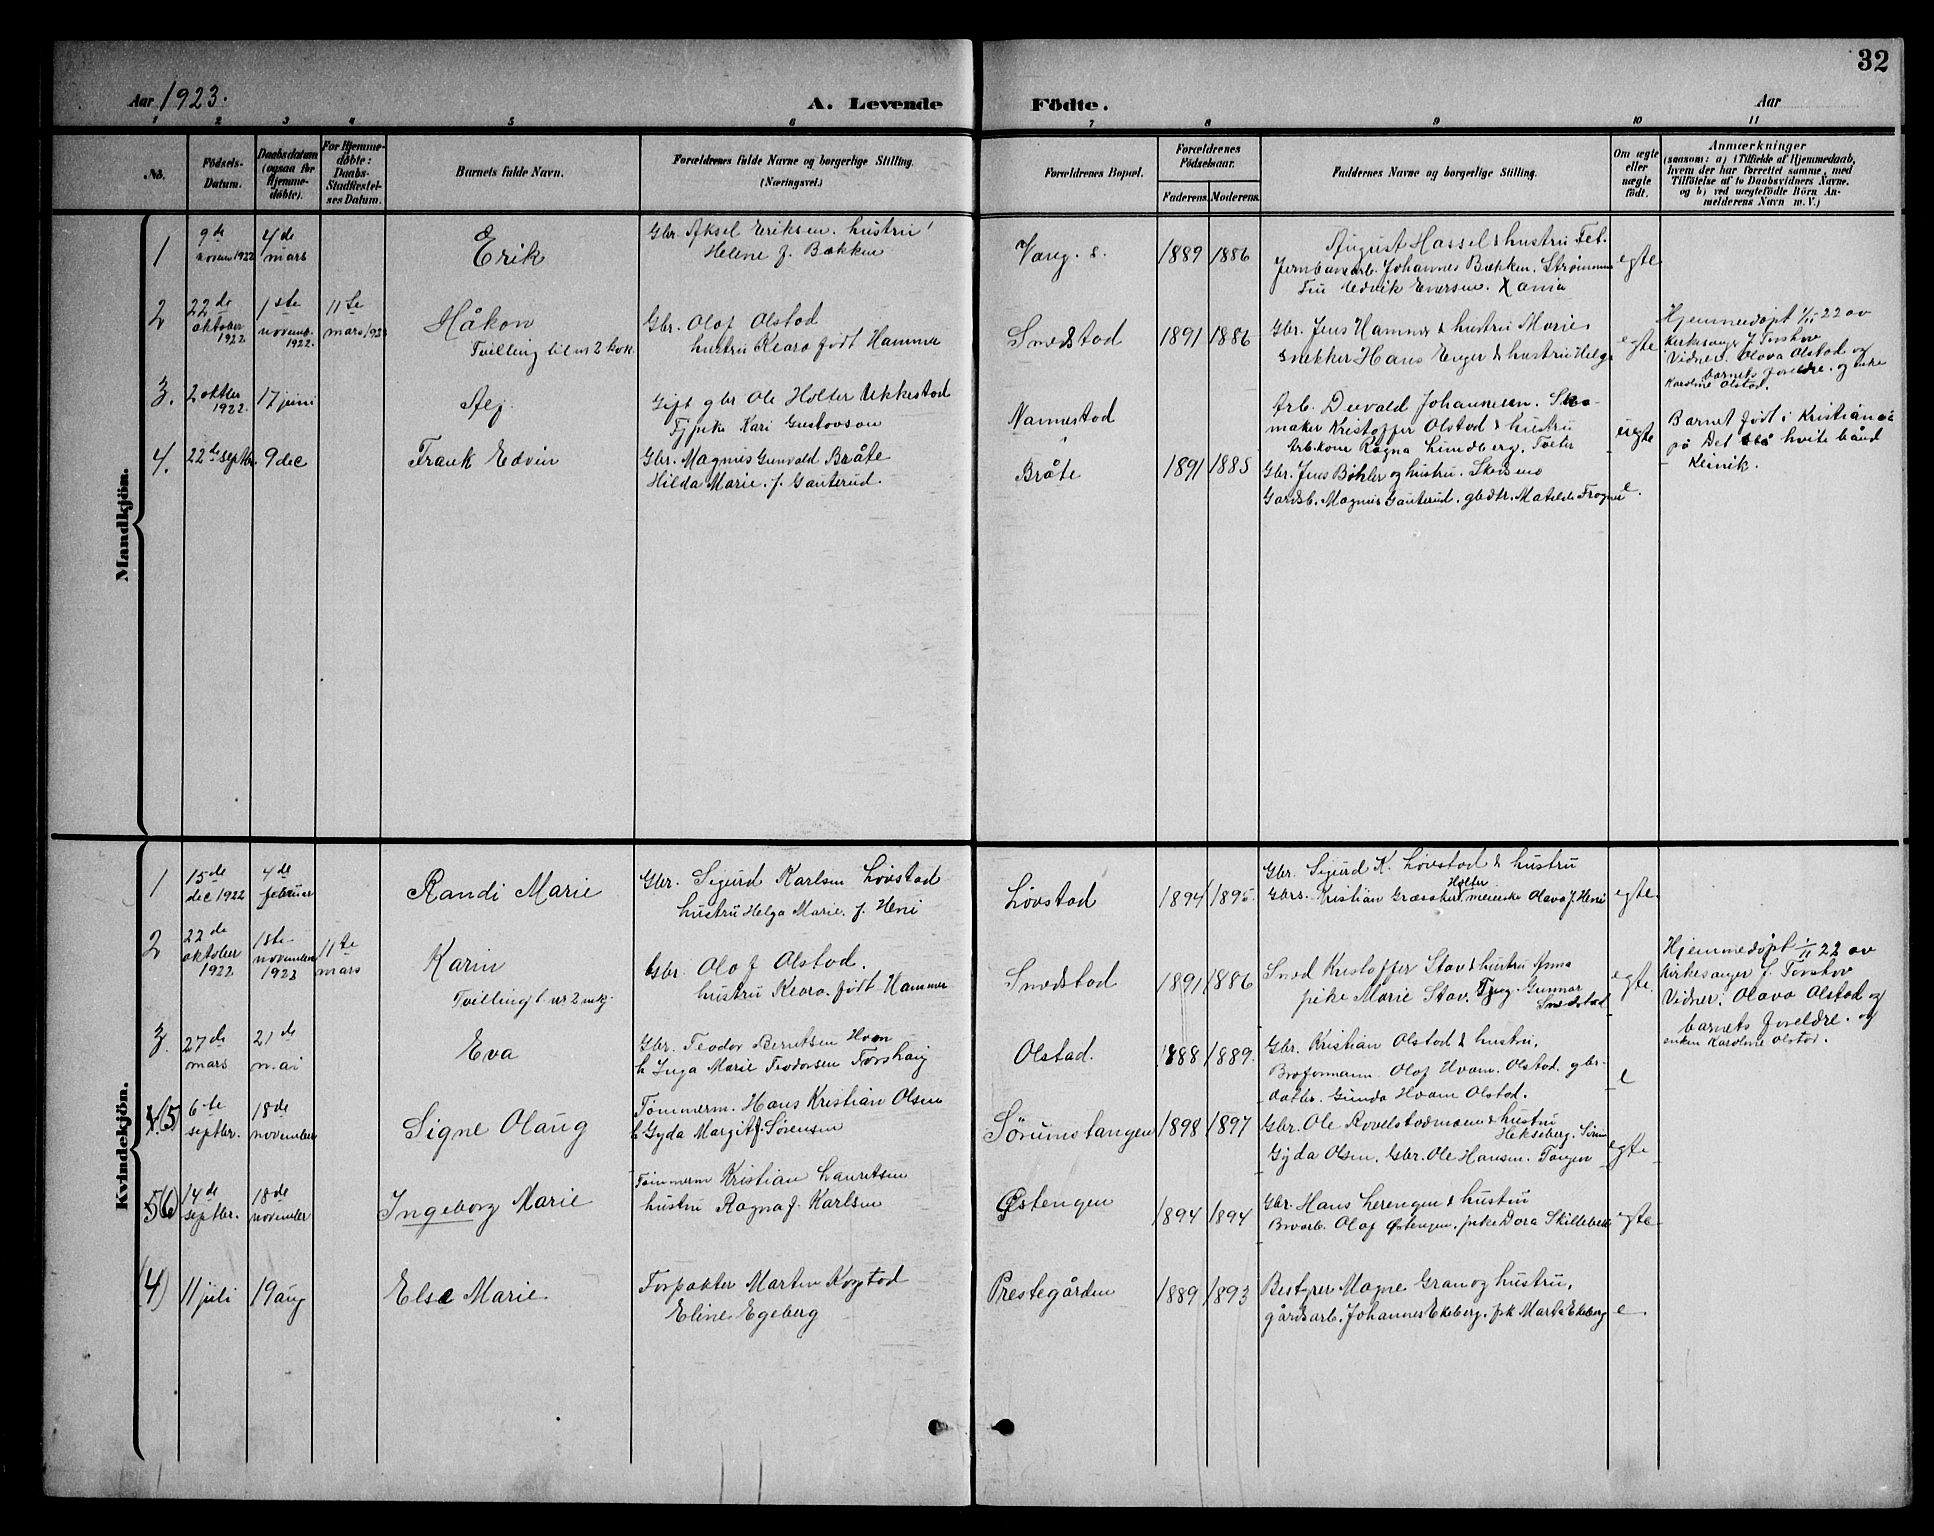 32
Aar 1923.
A. Levende Födte.
Aar
1 2 3 4 5 6 7 8 9 10 11
No.
Födsels-Datum.
Daabsdatum (ogsaa for Hjemmedøbte).
For Hjemmedøbte: Daabs-Stadfæstelses Datum.
Barnets fulde Navn.
Forældrenes fulde Navne og borgerlige Stilling.
(Næringsvei.)
Forældrenes Bopæl.
Forældrenes Födselsaar.
Faderens. Moderens.
Faddernes Navne og borgerlige Stilling.
Om ægte eller uægte födt.
Anmærkninger
(saasom: a) i Tilfælde af Hjemmedaab, hvem der har forrettet samme, med Tilföielse af to Daabsvidners Navne, og b) ved uægtefödte Börn Anmelderens Navn m. V.)
Mandkjön.
1
9de novem 1922
4de mars
Erik
Gbr. Aksel Eriksen. hustru
Helene f. Bækken
Vang. s.
1889 1886
August Hassel & hustru Fet.
Jernbanearb. Johannes Bækken. Strømmen
Edvik Eversen. Xania
egte
2
22de oktober 1922
1ste novemb. 1922
11te mars 1923
Håkon
Tvilling til nr 2 kvk.
Gbr. Olaf Olstad
hustru Klara født Hammer
Smedstad
1891 1886
Gbr. Jens Hammer & hustru Marie
snekker Hans Enger & hustru Helga
egte
Hjemmedøpt 1/11 22 av
kirkesanger J Torshov
Vidner: Olava Olstad og
barnets foreldre. og enke
Karoline Olstad.
3.
2 oktbr 1922.
17 juni
Alf.
Gift gbr Ole Holter Ukkestad
Tj pike Kari Gustavson
Nannestad
Arb. Devald Johannesen. Sko-
maker Kristoffer Olstad & hustru
Arb.kone Ragna Lundberg. Toeter
uegte
Barnet født i Kristiania
på Det hvite bånd
Kl​inik.
4.
22de septbr.
9 dec
Frank Edvin
Gbr. Magnus Gunvald Bråte
Hilda Marie. f. Gauterud.
Bråte
1891 1885
Gbr. Jens Bøhler og hustru. Skersmo
Gardsb. Magnus Gauterud. gbdtr. Matilde Frogner
e.
Kvindekjön.
1
15de dec 1922
4de februar
Randi Marie
Gbr. Sigurd Karlsen Løvstad
hustru Helga Marie. f. Heni
Løvstad
1894 1895.
Gbr. Sigurd K. Løvstad & hustru
Holter
Gbrs. Kristian meierske Olava f. Heni
egte.
2
22de oktober 1922
1ste november 1923
11te mars
Karin
Tvilling t. nr 2 mk.
Gbr. Olaf Olstad.
hustru Klara født Hammer
Smedstad
1891 1886
Smed Kristoffer Stav & hustru Anna
pike Marie Stav. Tjpig. Gunnar
Smedstad
egte.
Hjemmedøpt 1/11 22 av
kirkesanger J. Torshov
Vidner: Olava Olstad og
barnets foreldre. og
enken Karoline Olstad.
3.
27de mars
21de mai
Eva
Gbr. Teodor Berntsen Hvam
h Inga Marie Teodorsen Torshaug
Olstad.
1888 1889.
Gbr. Kristian Olstad & hustru,
Broformann Olaf Hvam. Olstad. gbr-
datter. Gunda Hvam Olstad.
e
4.(5
6te septbr.
18de november
Signe Olaug
Tømmerm. Hans Kristian Olsen
h Gyda Margit f. Sørensen
Sørumstangen
1898 1897
Gbr. Ole Rovelstadmoen & hustru
Hekseberg. Sørum
Gyda Olsen. Gbr. Ole Hansen. Tangen
egte
5(6)
14de septbr.
18de november
Ingeborg Marie
Tømmerm Kristian Lauritsen
hustru Ragna f. Karlsen
Østengen
1894 1894
Gbr. Hans Lerengen & hustru
Broarb. Olaf Østengen. pike Dora Skillebekk
egte
(4)
11 juli
19 aug
Else Marie.
Forpakter Martin Kogstad
Eline Egeberg
Prestegården
1889 1893
Bestyrer Magne Gran og hustru,
gårdsarb. Johannes Ekeberg. pik Marta Ekeberg
e.